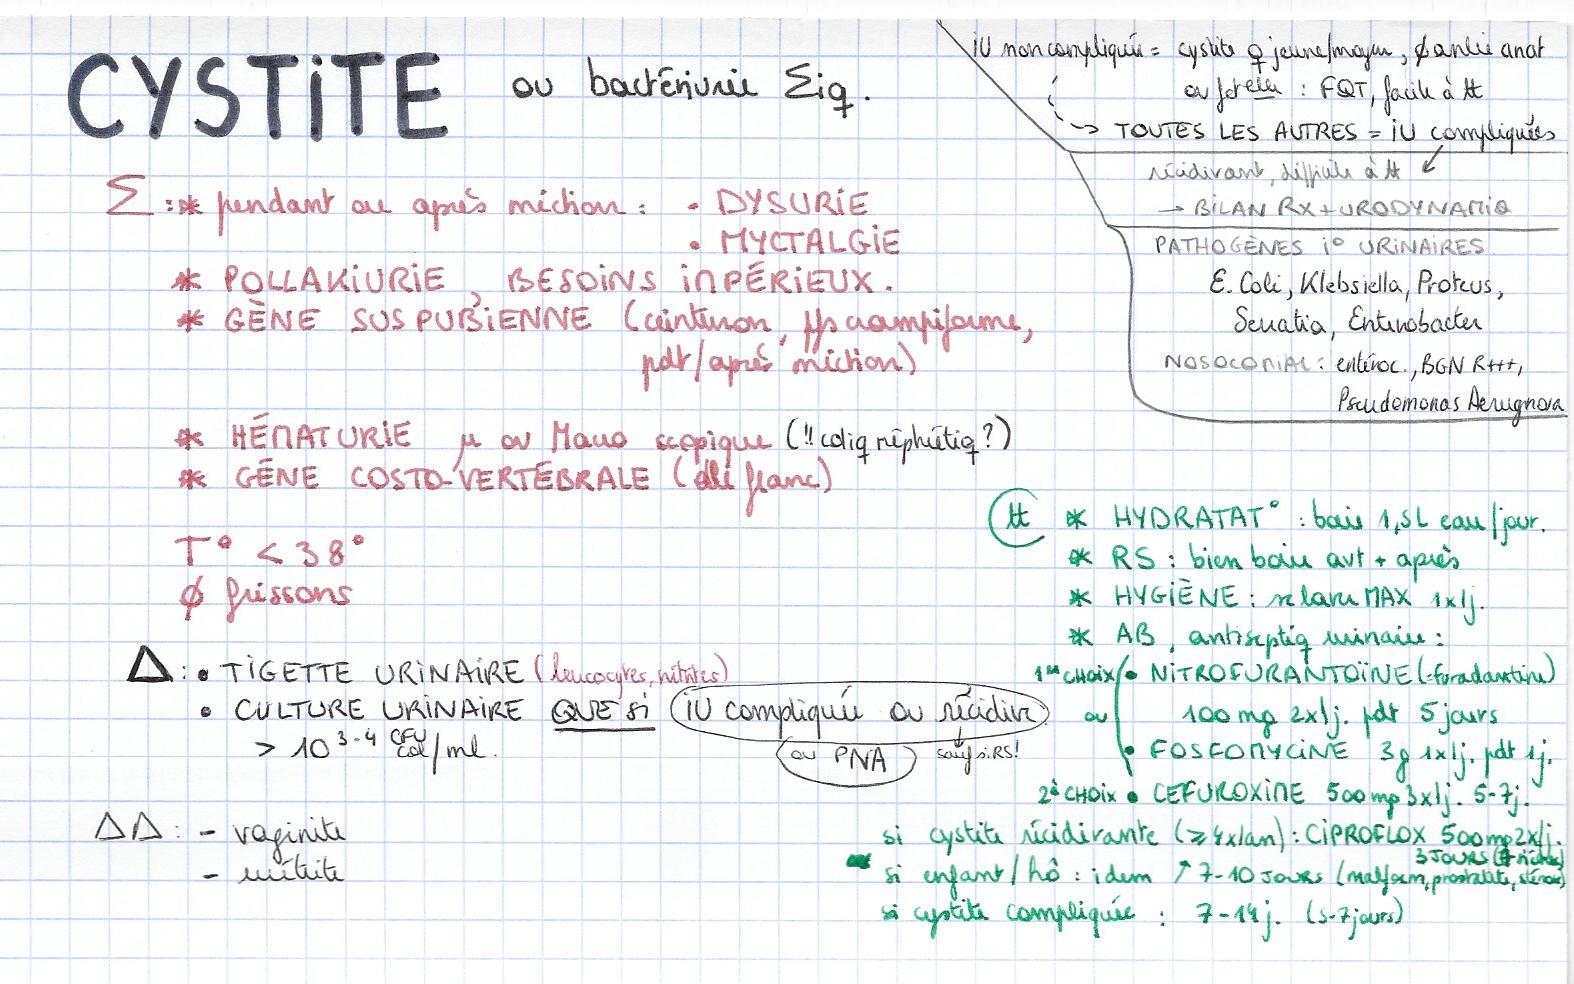 CYSTITE ou bactériurie Σiq.
IU non compliquée = cystite ♀ jeune/moyen, ø antéc anat
ou : FQT, facile à tt
--> TOUTES LES AUTRES = IU compliquées
récidivant, difficile à tt
→ BILAN RX + URODYNAMIQ
PATHOGÈNES i° URINAIRES
E. Coli, Klebsiella, Proteus,
Serratia, Enterobacter
NOSOCOMIAL : entéroc., BGN R+++,
Pseudomonas Aeruginosa
Σ : * pendant ou après miction : • DYSURIE
• MYCTALGIE
* POLLAKIURIE, BESOINS IMPÉRIEUX.
* GÈNE SUSPUBIENNE (ceinturon, crampiforme,
pdt/après miction)
* HÉMATURIE μ ou Macroscopique (!! coliq néphrétiq ?)
* GÊNE COSTO-VERTÉBRALE (dlr flanc)
T° < 38°
ø frissons
Δ : • TIGETTE URINAIRE (leucocytes, nitrites)
• CULTURE URINAIRE QUE si IU compliquée ou récidive
> 10 3-4 CFU col/ml.
ou PNA
sauf si RS!
ΔΔ : - vaginite
- urétrite
tt * HYDRATAT° : boire 1,5L eau/jour.
* RS : bien boire avt + après
* HYGIÈNE : se laver MAX 1x/j.
* AB, antiseptiq urinaire :
1er CHOIX • NITROFURANTOÏNE (=furadantine)
ou 100 mg 2x/j. pdt 5 jours
• FOSFOMYCINE 3g 1x/j. pdt 1j.
2è CHOIX • CEFUROXIME 500mg 3x/j. 5-7j.
si cystite récidivante (≥ 4x/an) : CIPROFLOX 500mg 2x/j.
3 JOURS
si enfant/hô : idem ↑ 7-10 JOURS (malform, prostatite, sténose)
si cystite compliquée : 7-14j. (5-7jours)